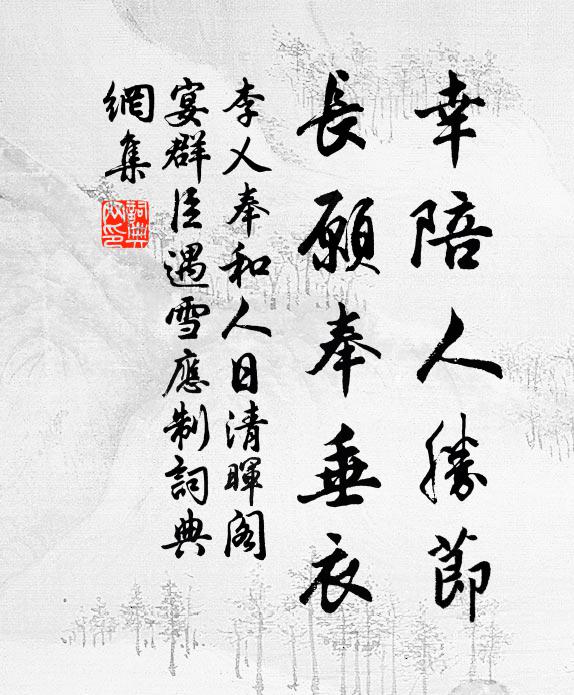 幸陪人勝節
長願奉垂衣
李乂奉和人日清暉閣
宴群臣遇雪應制詞典
網集
詞典
網印